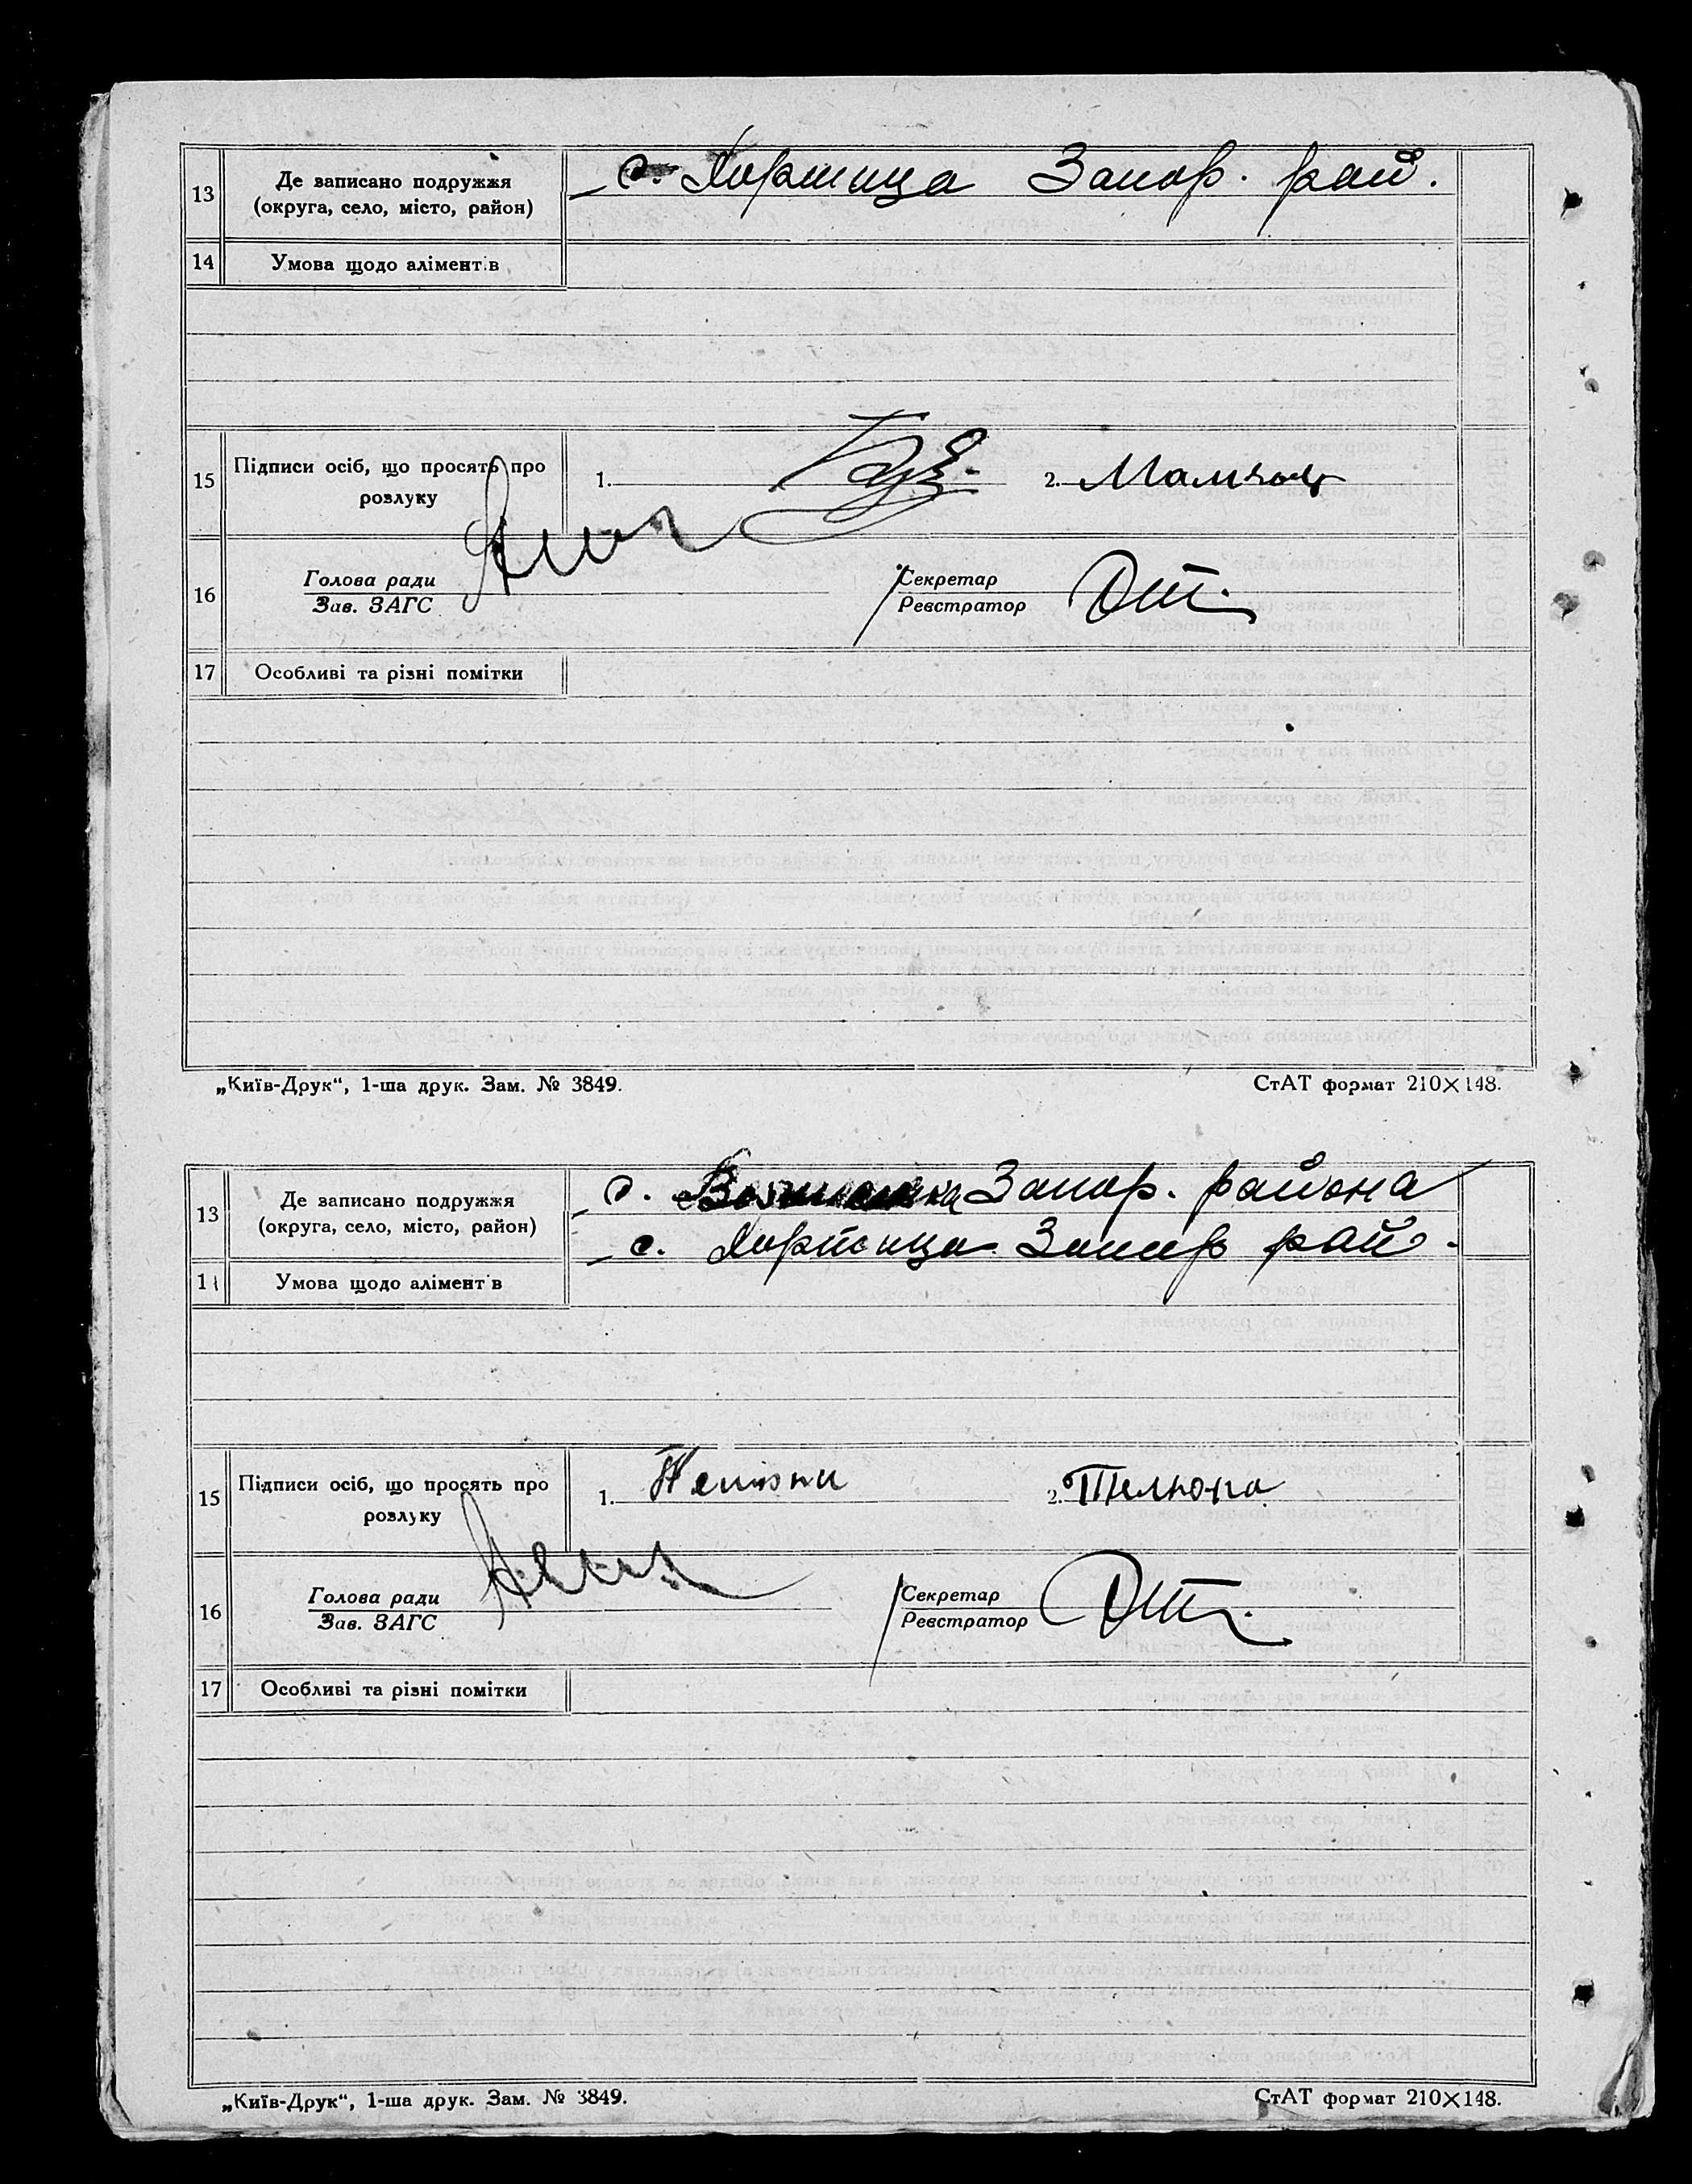 13 Де записано подружжя с. Хортица Запор. рай.
(округа, село, місто, район)
14 Умова щодо аліментів
15 Підписи осіб, що просять про 1. 2.
розлуку
16 Голова ради Секретар
Зав. ЗАГС Реєстратор
17 Особливі та різні помітки
„Київ-Друк“, 1-ша друк. Зам. № 3849. СтАТ формат 210×148.
13 Де записано подружжя с. Запор. района
(округа, село, місто, район) с. Хортица Запор рай.
14 Умова щодо аліментів
15 Підписи осіб, що просять про 1. 2.
розлуку
16 Голова ради Секретар
Зав. ЗАГС Реєстратор
17 Особливі та різні помітки
„Київ-Друк“, 1-ша друк. Зам. № 3849. СтАТ формат 210×148.